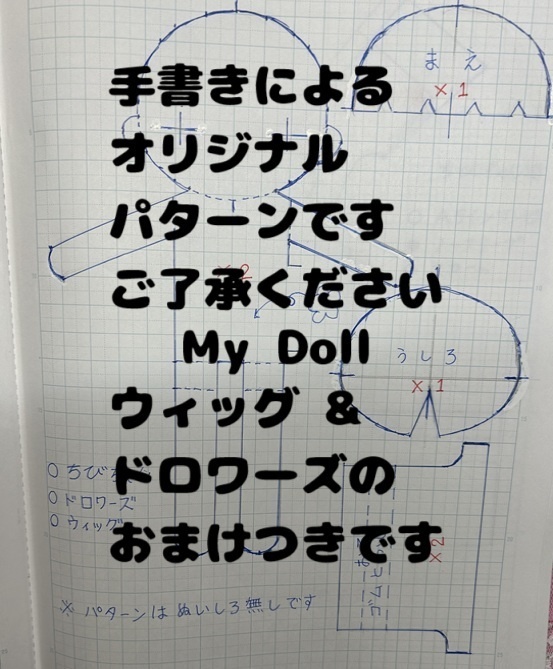 手書きによる
オリジナル
パターンです
ご了承ください
My Doll
ウィッグ &
ドロワーズの
おまけつきです
まえ
×1
×2
うしろ
×1
○ちび
○ドロワーズ
○ウィッグ
×2
※ パターンは ぬいしろ無しです